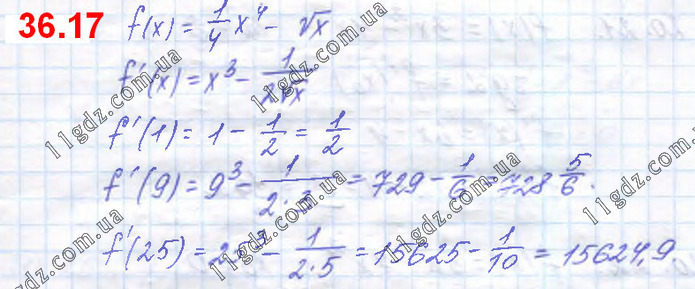 36.17 f(x) = 1/4 x⁴ − √x
f'(x) = x³ − 1/(2√x)
f'(1) = 1 − 1/2 = 1/2
f'(9) = 9³ − 1/(2·3) = 729 − 1/6 = 728 5/6.
f'(25) = 25³ − 1/(2·5) = 15625 − 1/10 = 15624,9.
11gdz.com.ua
11gdz.com.ua
11gdz.com.ua
11gdz.com.ua
11gdz.com.ua
11gdz.com.ua